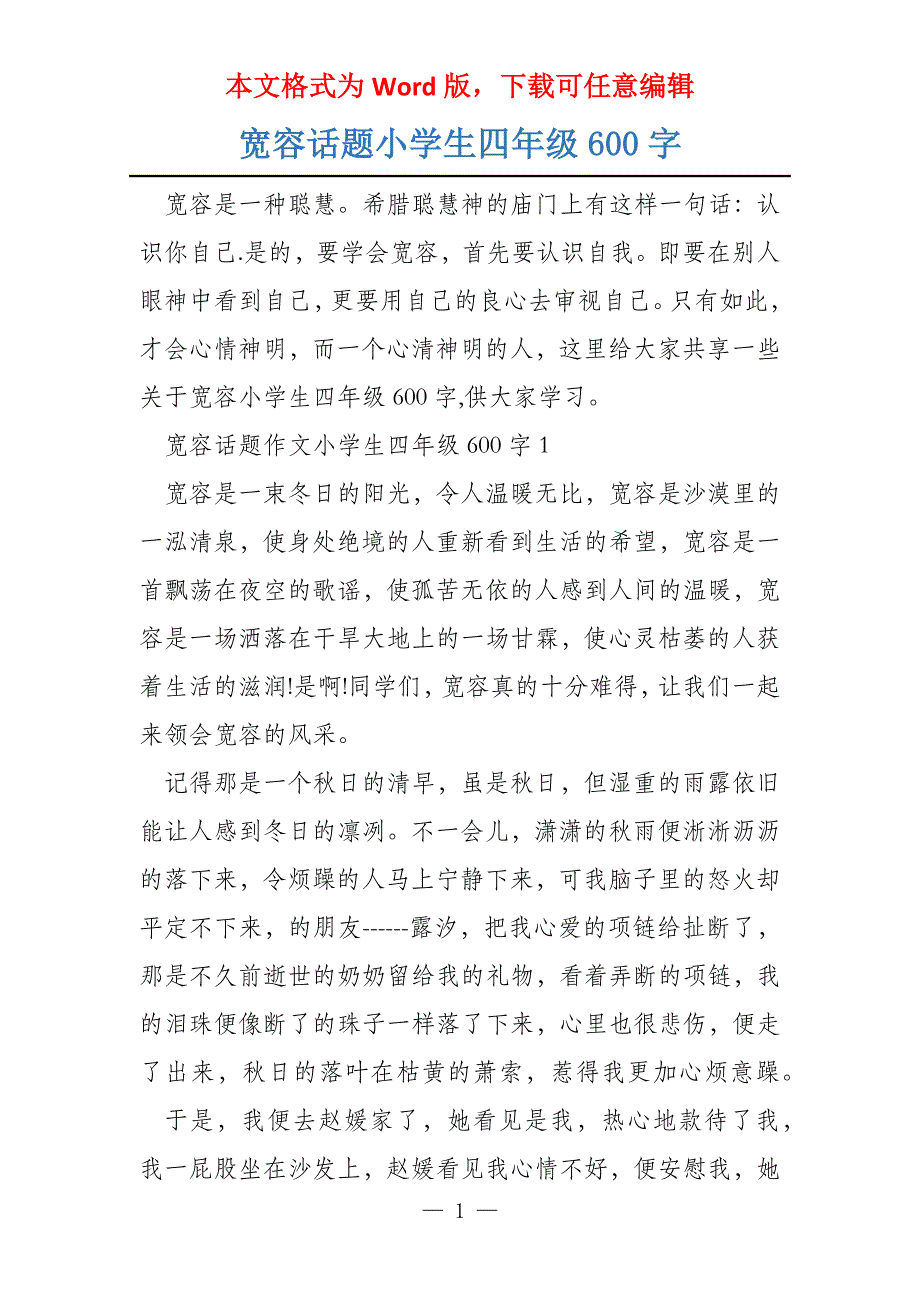 本文格式为 Word 版，下载可任意编辑
宽容话题小学生四年级 600 字
宽容是一种聪慧。希腊聪慧神的庙门上有这样一句话：认
识你自己.是的，要学会宽容，首先要认识自我。即要在别人
眼神中看到自己，更要用自己的良心去审视自己。只有如此，
才会心情神明，而一个心清神明的人，这里给大家共享一些
关于宽容小学生四年级 600 字,供大家学习。
宽容话题作文小学生四年级 600 字 1
宽容是一束冬日的阳光，令人温暖无比，宽容是沙漠里的
一泓清泉，使身处绝境的人重新看到生活的希望，宽容是一
首飘荡在夜空的歌谣，使孤苦无依的人感到人间的温暖，宽
容是一场洒落在干旱大地上的一场甘霖，使心灵枯萎的人获
着生活的滋润!是啊!同学们，宽容真的十分难得，让我们一起
来领会宽容的风采。
记得那是一个秋日的清早，虽是秋日，但湿重的雨露依旧
能让人感到冬日的凛冽。不一会儿，潇潇的秋雨便淅淅沥沥
的落下来，令烦躁的人马上宁静下来，可我脑子里的怒火却
平定不下来，的朋友------露汐，把我心爱的项链给扯断了，
那是不久前逝世的奶奶留给我的礼物，看着弄断的项链，我
的泪珠便像断了的珠子一样落了下来，心里也很悲伤，便走
了出来，秋日的落叶在枯黄的萧索，惹得我更加心烦意躁。
于是，我便去赵媛家了，她看见是我，热心地款待了我，
我一屁股坐在沙发上，赵媛看见我心情不好，便安慰我，她
— 1 —